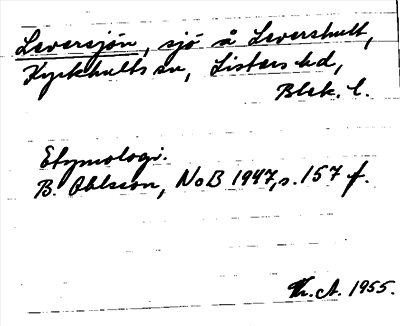 Leversjön, sjö å Levershult,
Kyrkhults sn, Listers hd,
Blek. l.
Etymologi.
B. Ohlsson, NoB 1947, s. 157 f.
A. 1955.